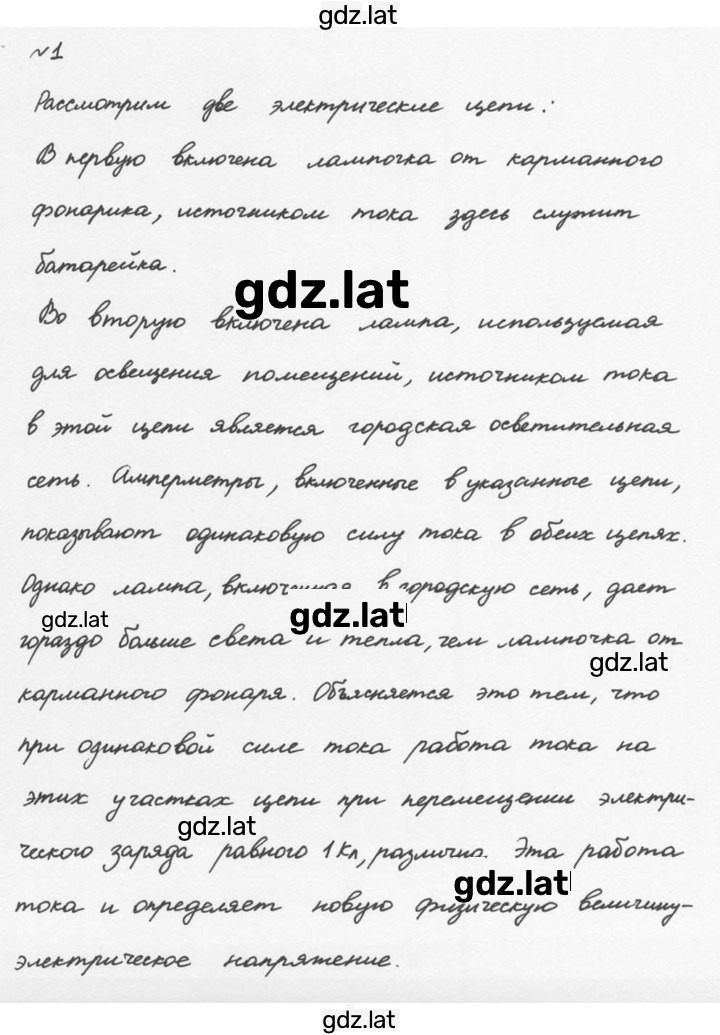 gdz.lat
№1
Рассмотрим две электрические цепи:
В первую включена лампочка от карманного
фонарика, источником тока здесь служит
батарейка.
gdz.lat
Во вторую включена лампа, используемая
для освещения помещений, источником тока
в этой цепи является городская осветительная
сеть. Амперметры, включенные в указанные цепи,
показывают одинаковую силу тока в обеих цепях.
Однако лампа, включенная в городскую сеть, дает
gdz.lat
gdz.lat
гораздо больше света и тепла, чем лампочка от
gdz.lat
карманного фонаря. Объясняется это тем, что
при одинаковой силе тока работа тока на
этих участках цепи при перемещении электри-
gdz.lat
ческого заряда равного 1Кл, различна. Эта работа
gdz.lat
тока и определяет новую физическую величину-
электрическое напряжение.
gdz.lat